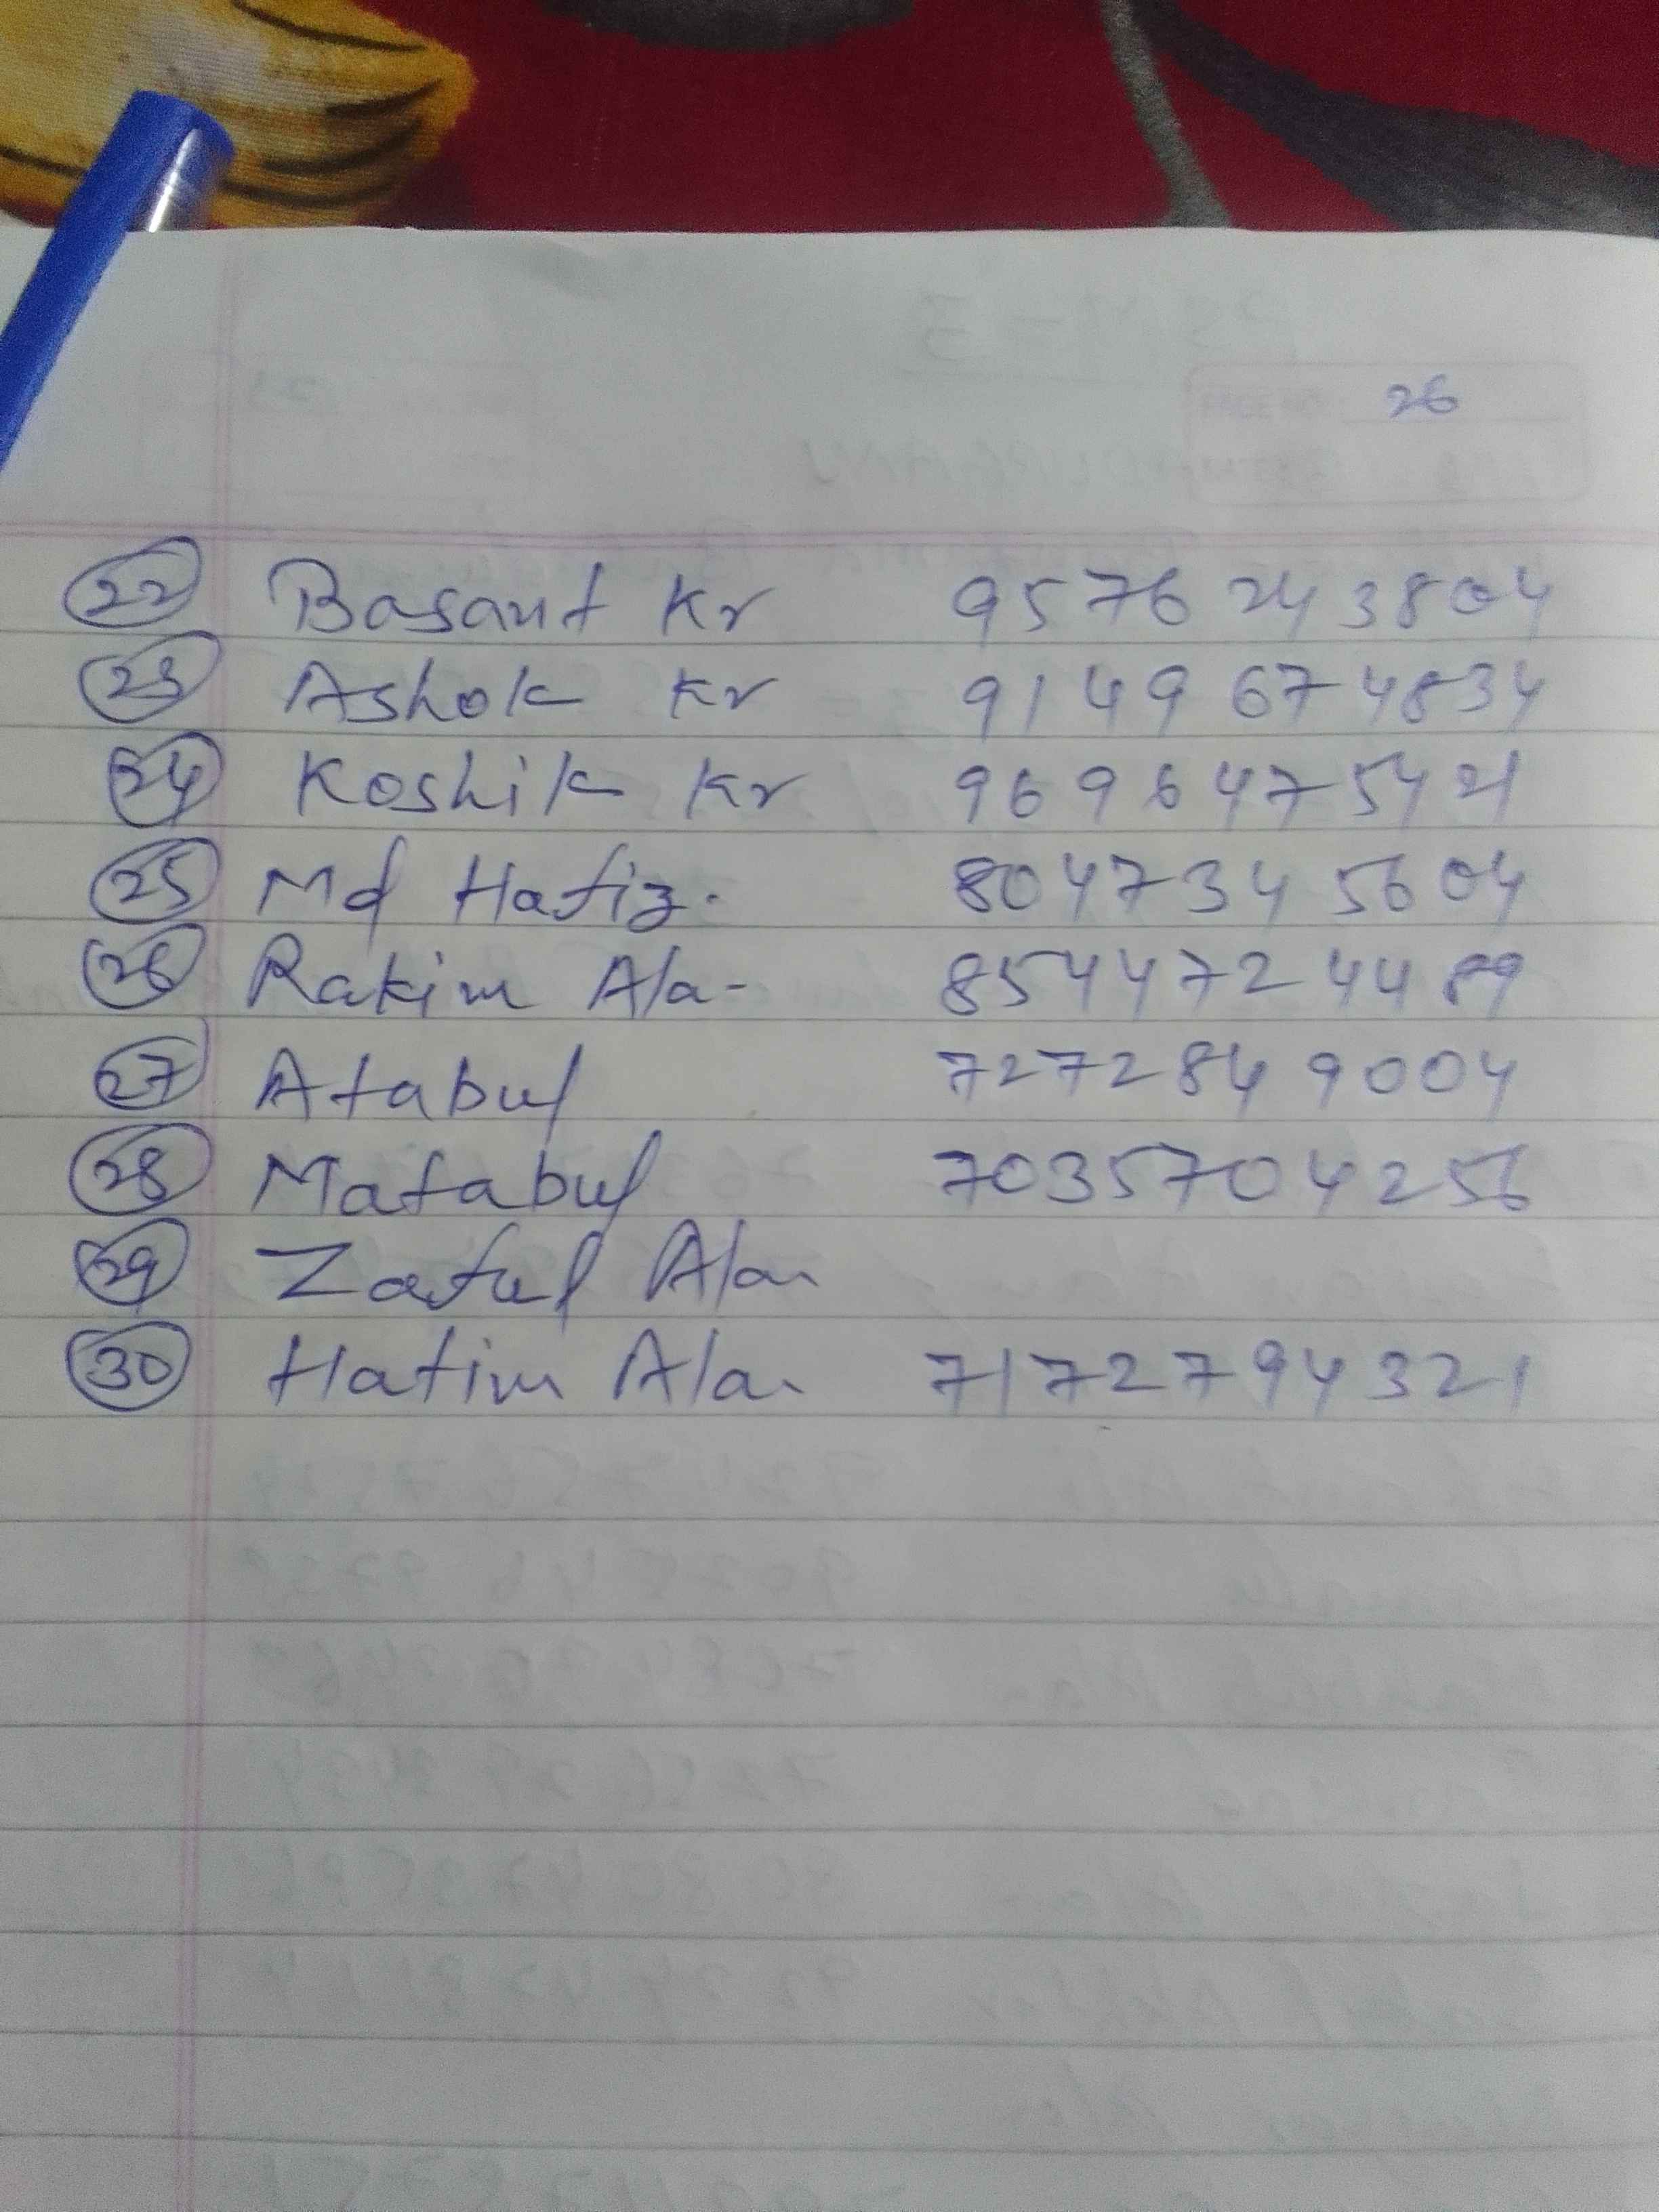 PAGE NO. 26
22 Basant Kr 9576243804
23 Ashok Kr 9149674834
24 Koshik Kr 9696475421
25 Md Hafiz. 8047345604
26 Rakim Ala- 8544724489
27 Atabul 7272849004
28 Matabul 7035704256
29 Zaful Ala
30 Hatim Ala 7172794321